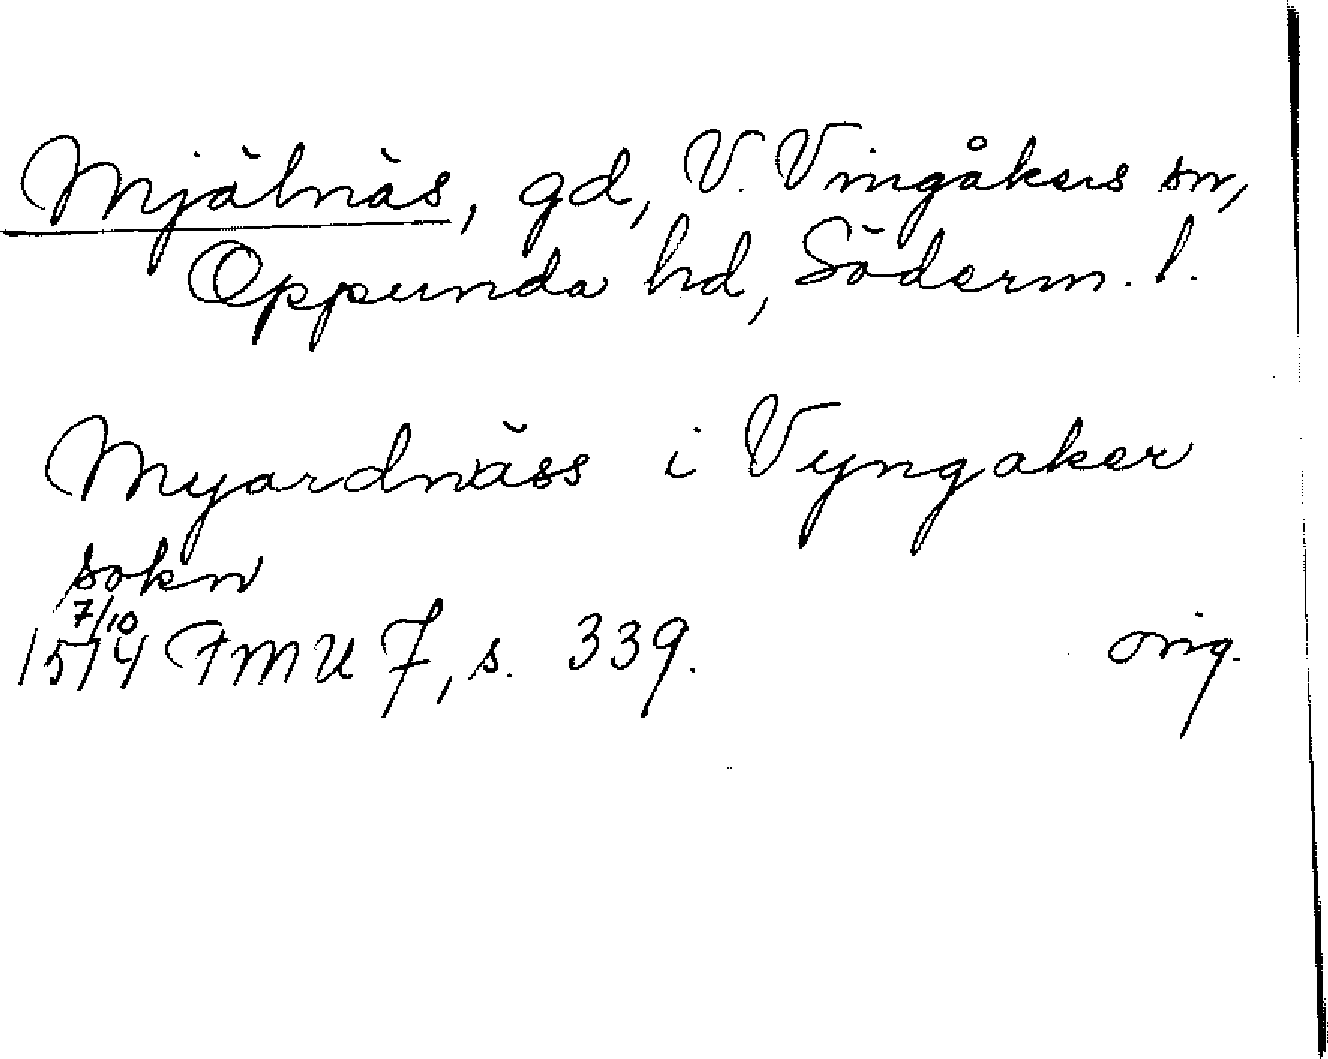 Mjälnäs, gd, V. Vingåkers sn,
Oppunda hd, Söderm. l.
Myardnäss i Vyngaker
sokn
7/10
1514 FMU 7, s. 339. orig.